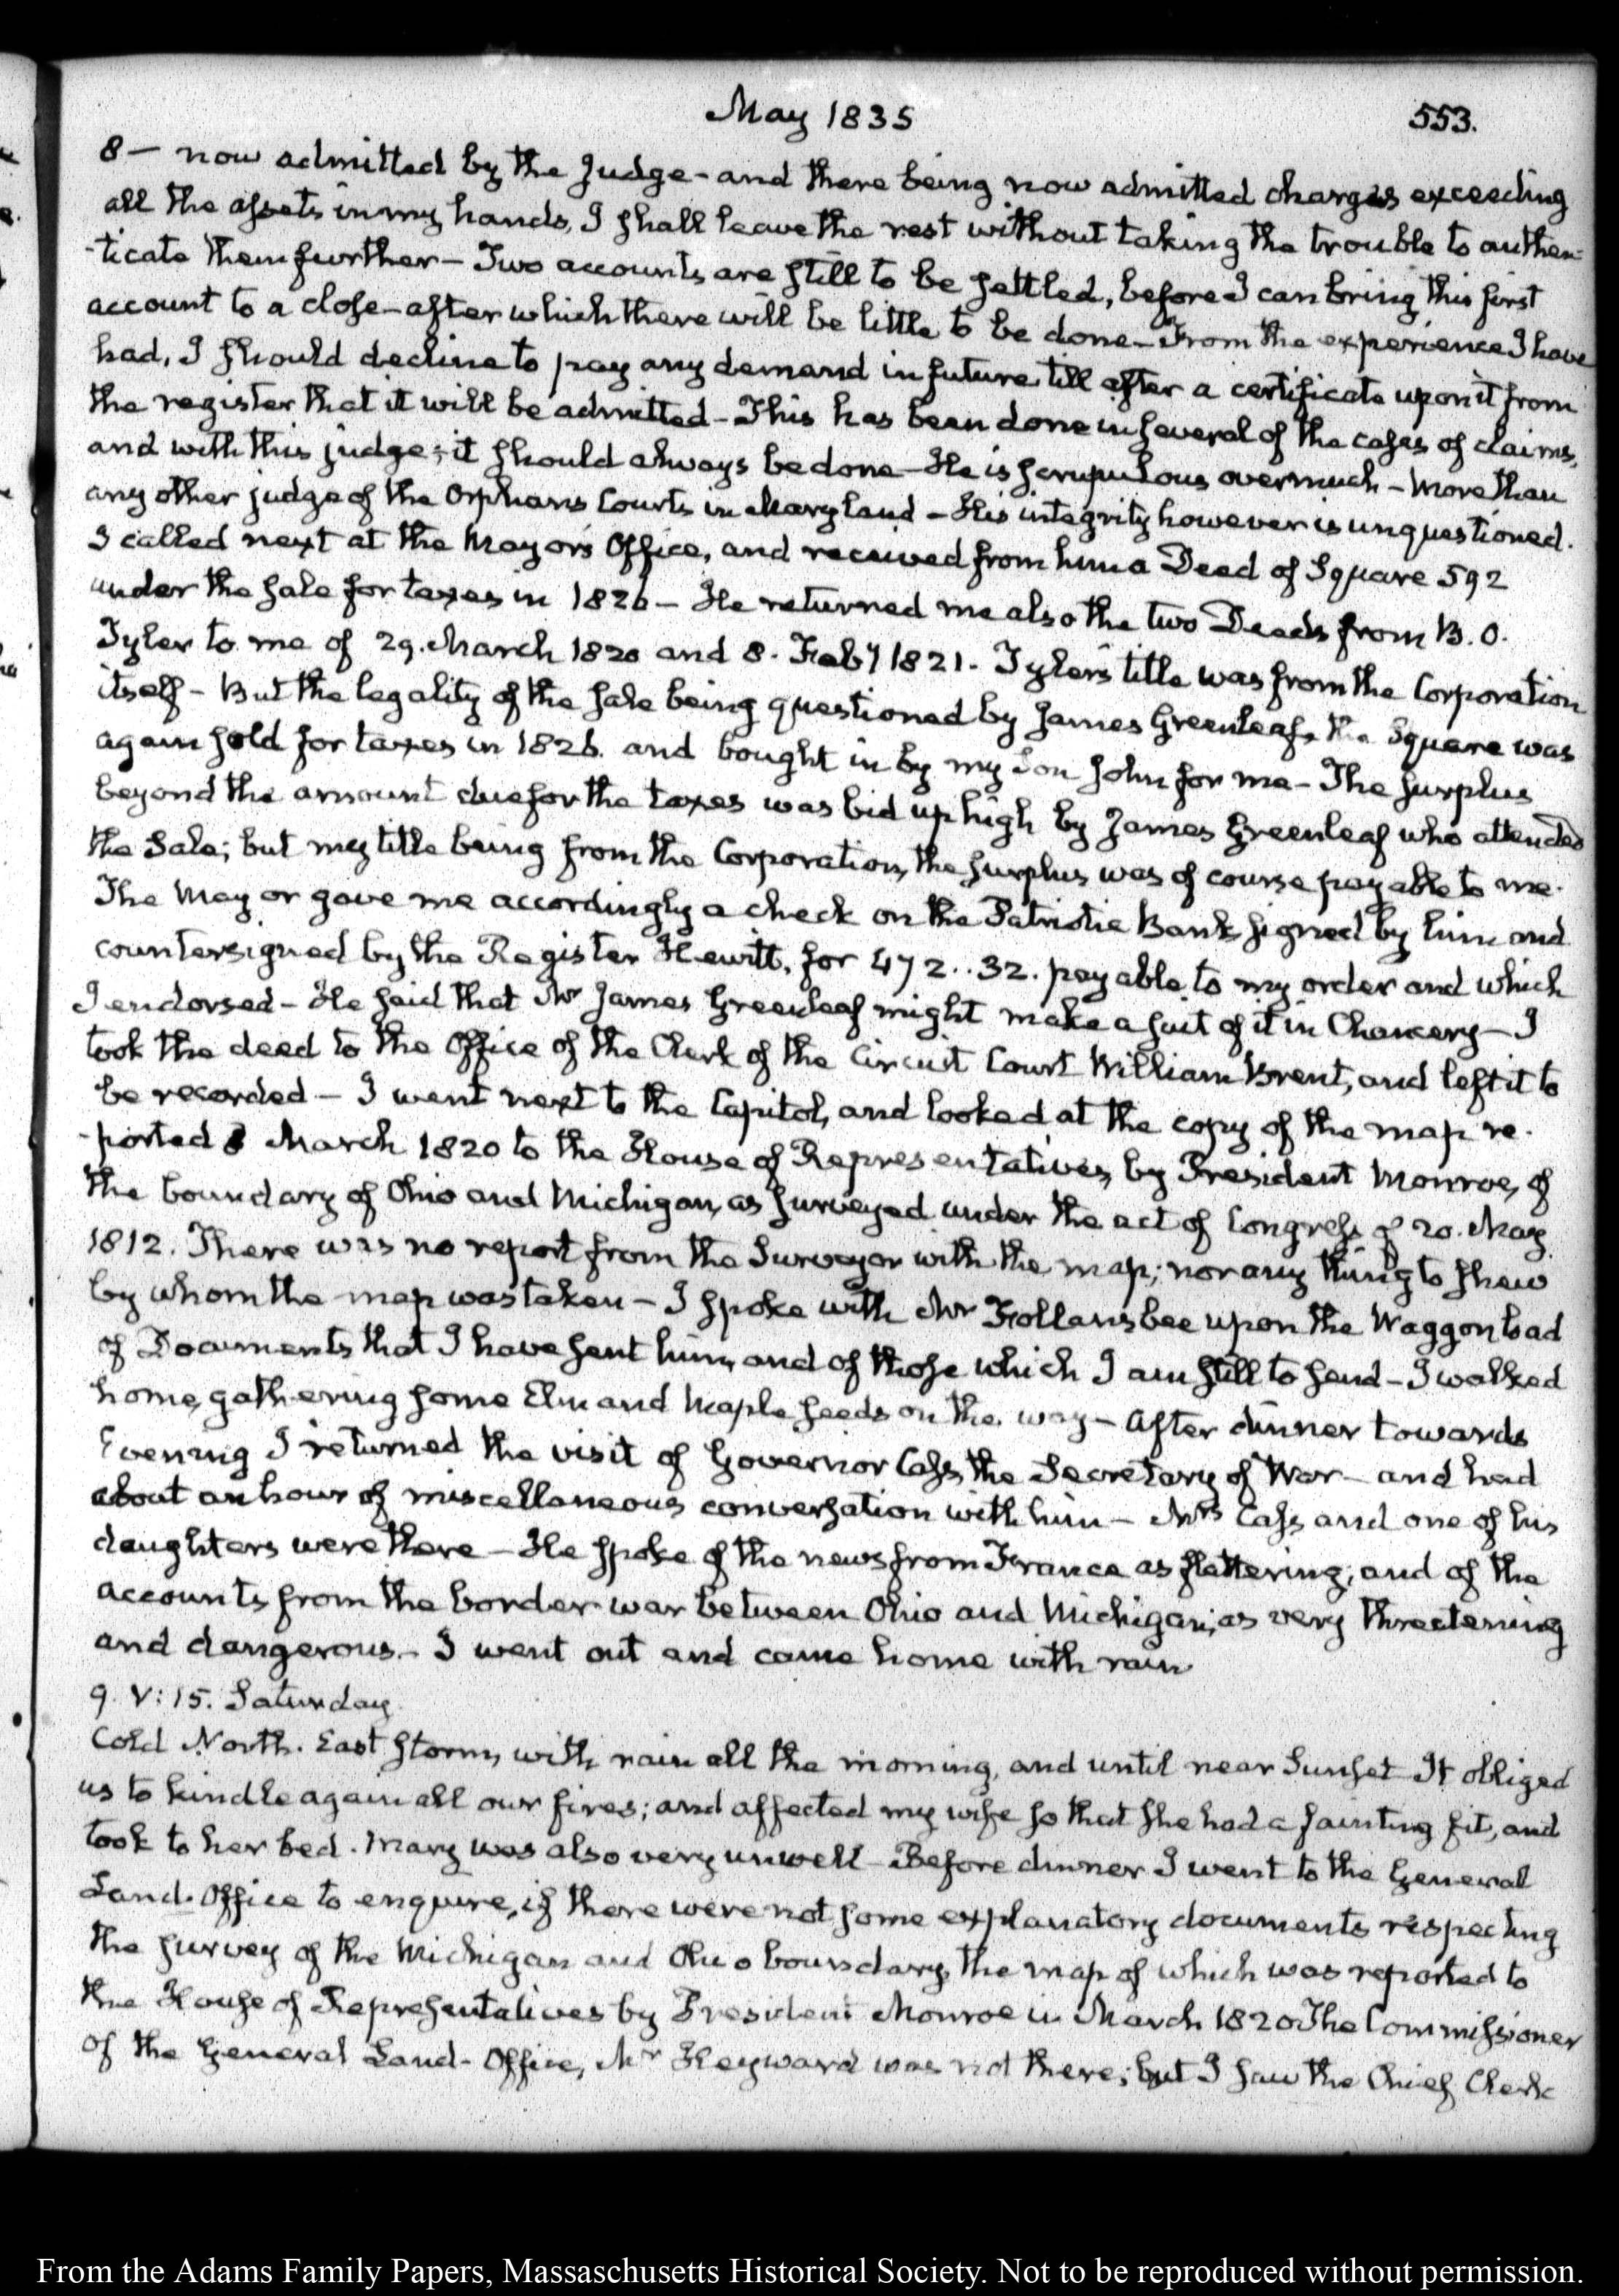 May 1835 553.
8 — now admitted by the Judge - and there being now admitted charges exceeding
all the assets in my hands, I shall leave the rest without taking the trouble to authen-
-ticate them further — Two accounts are still to be settled, before I can bring this first
account to a close - after which there will be little to be done — From the experience I have
had, I should decline to pay any demand in future till after a certificate upon it from
the register that it will be admitted — This has been done in several of the cases of claims,
and with this judge, it should always be done — He is scrupulous overmuch — more than
any other judge of the Orphans Courts in Maryland — His integrity however is unquestioned.
I called next at the Mayor's Office, and received from him a Deed of Square 592
under the sale for taxes in 1826 — He returned me also the two Deeds from B. O.
Tyler to me of 29. March 1820 and 8. Feby 1821. Tyler's title was from the Corporation
itself — But the legality of the sale being questioned by James Greenleaf, the Square was
again sold for taxes in 1826. and bought in by my Son John for me — The surplus
beyond the amount due for the taxes was bid up high by James Greenleaf who attended
the Sale; but my title being from the Corporation, the surplus was of course payable to me.
The Mayor gave me accordingly a check on the Patriotic Bank signed by him and
countersigned by the Register Hewitt, for 472..32. payable to my order and which
I endorsed — He said that Mr James Greenleaf might make a suit of it in Chancery — I
took the deed to the Office of the Clerk of the Circuit Court William Brent, and left it to
be recorded — I went next to the Capitol, and looked at the copy of the map re-
-ported 8 March 1820 to the House of Representatives, by President Monroe, of
the boundary of Ohio and Michigan, as surveyed under the act of Congress of 20. May
1812. There was no report from the Surveyor with the map; nor any thing to shew
by whom the map was taken — I spoke with Mr Follansbee upon the Waggon load
of Documents that I have sent him, and of those which I am still to send — I walked
home, gathering some Elm and Maple seeds on the way — After dinner towards
Evening I returned the visit of Governor Cass, the Secretary of War — and had
about an hour of miscellaneous conversation with him — Mrs Cass and one of his
daughters were there — He spoke of the news from France as flattering; and of the
accounts from the border war between Ohio and Michigan, as very threatening
and dangerous. — I went out and came home with rain
9. V:15. Saturday.
Cold North-East storm, with rain all the morning, and until near Sunset It obliged
us to kindle again all our fires; and affected my wife so that she had a fainting fit, and
took to her bed. Mary was also very unwell — Before dinner I went to the General
Land-Office to enquire, if there were not some explanatory documents respecting
the survey of the Michigan and Ohio boundary, the map of which was reported to
the House of Representatives by President Monroe in March 1820 The Commissioner
of the General Land-Office, Mr Heyward was not there; but I saw the Chief Clerk
From the Adams Family Papers, Massachusetts Historical Society. Not to be reproduced without permission.